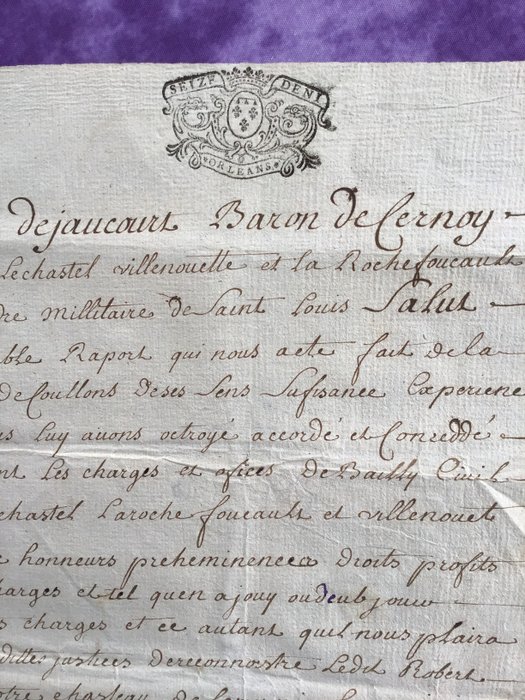 SEIZE DENI
ORLEANS
dejaucourt Baron de Cernoy
Lechastel villenouette et la Rochefoucault
dre millitaire de Saint Louis Salut
ble Raport qui nous a ete fait de la
de Coullons De ses Sens Sufisance Experiene
us luy avons octroyé accordé et Conceddé
nt Les charges et ofices de Bailly Civil
chastel Laroche foucault et villenouet
e honneurs preheminences droits profits
harges et tel quen a jouy ou deub jouir
s charges et ce autant quil nous plaira
dittes justices de reconnoistre Ledit Robert
otre chasteau de